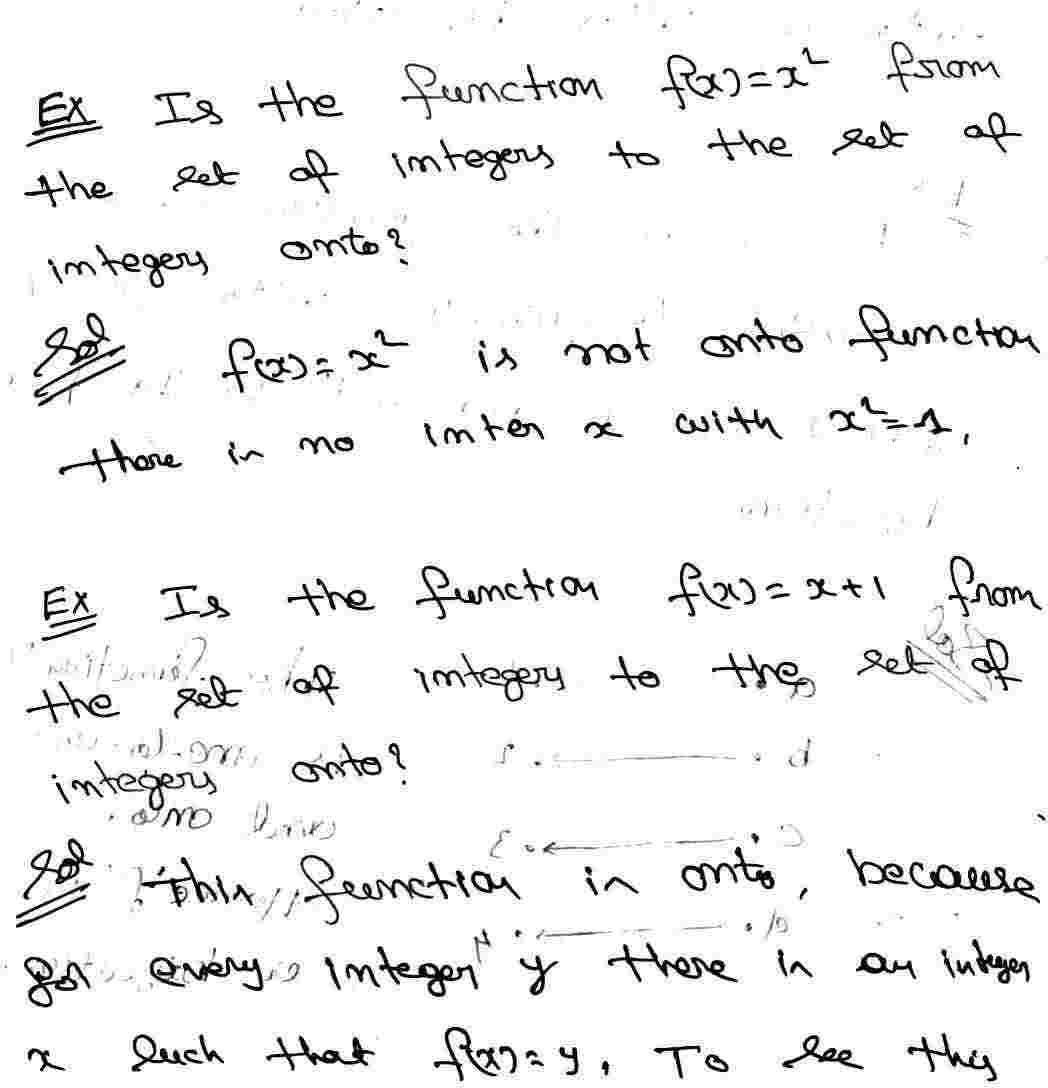 Ex Is the function f(x)=x² from
the set of integers to the set of
integers onto?
Sol f(x)=x² is not onto function
there is no inter x with x²=-1.
Ex Is the function f(x)=x+1 from
the set of integers to the set of
integers onto?
Sol This function is onto, because
for every integer y there is an integer
x such that f(x)=y. To see this